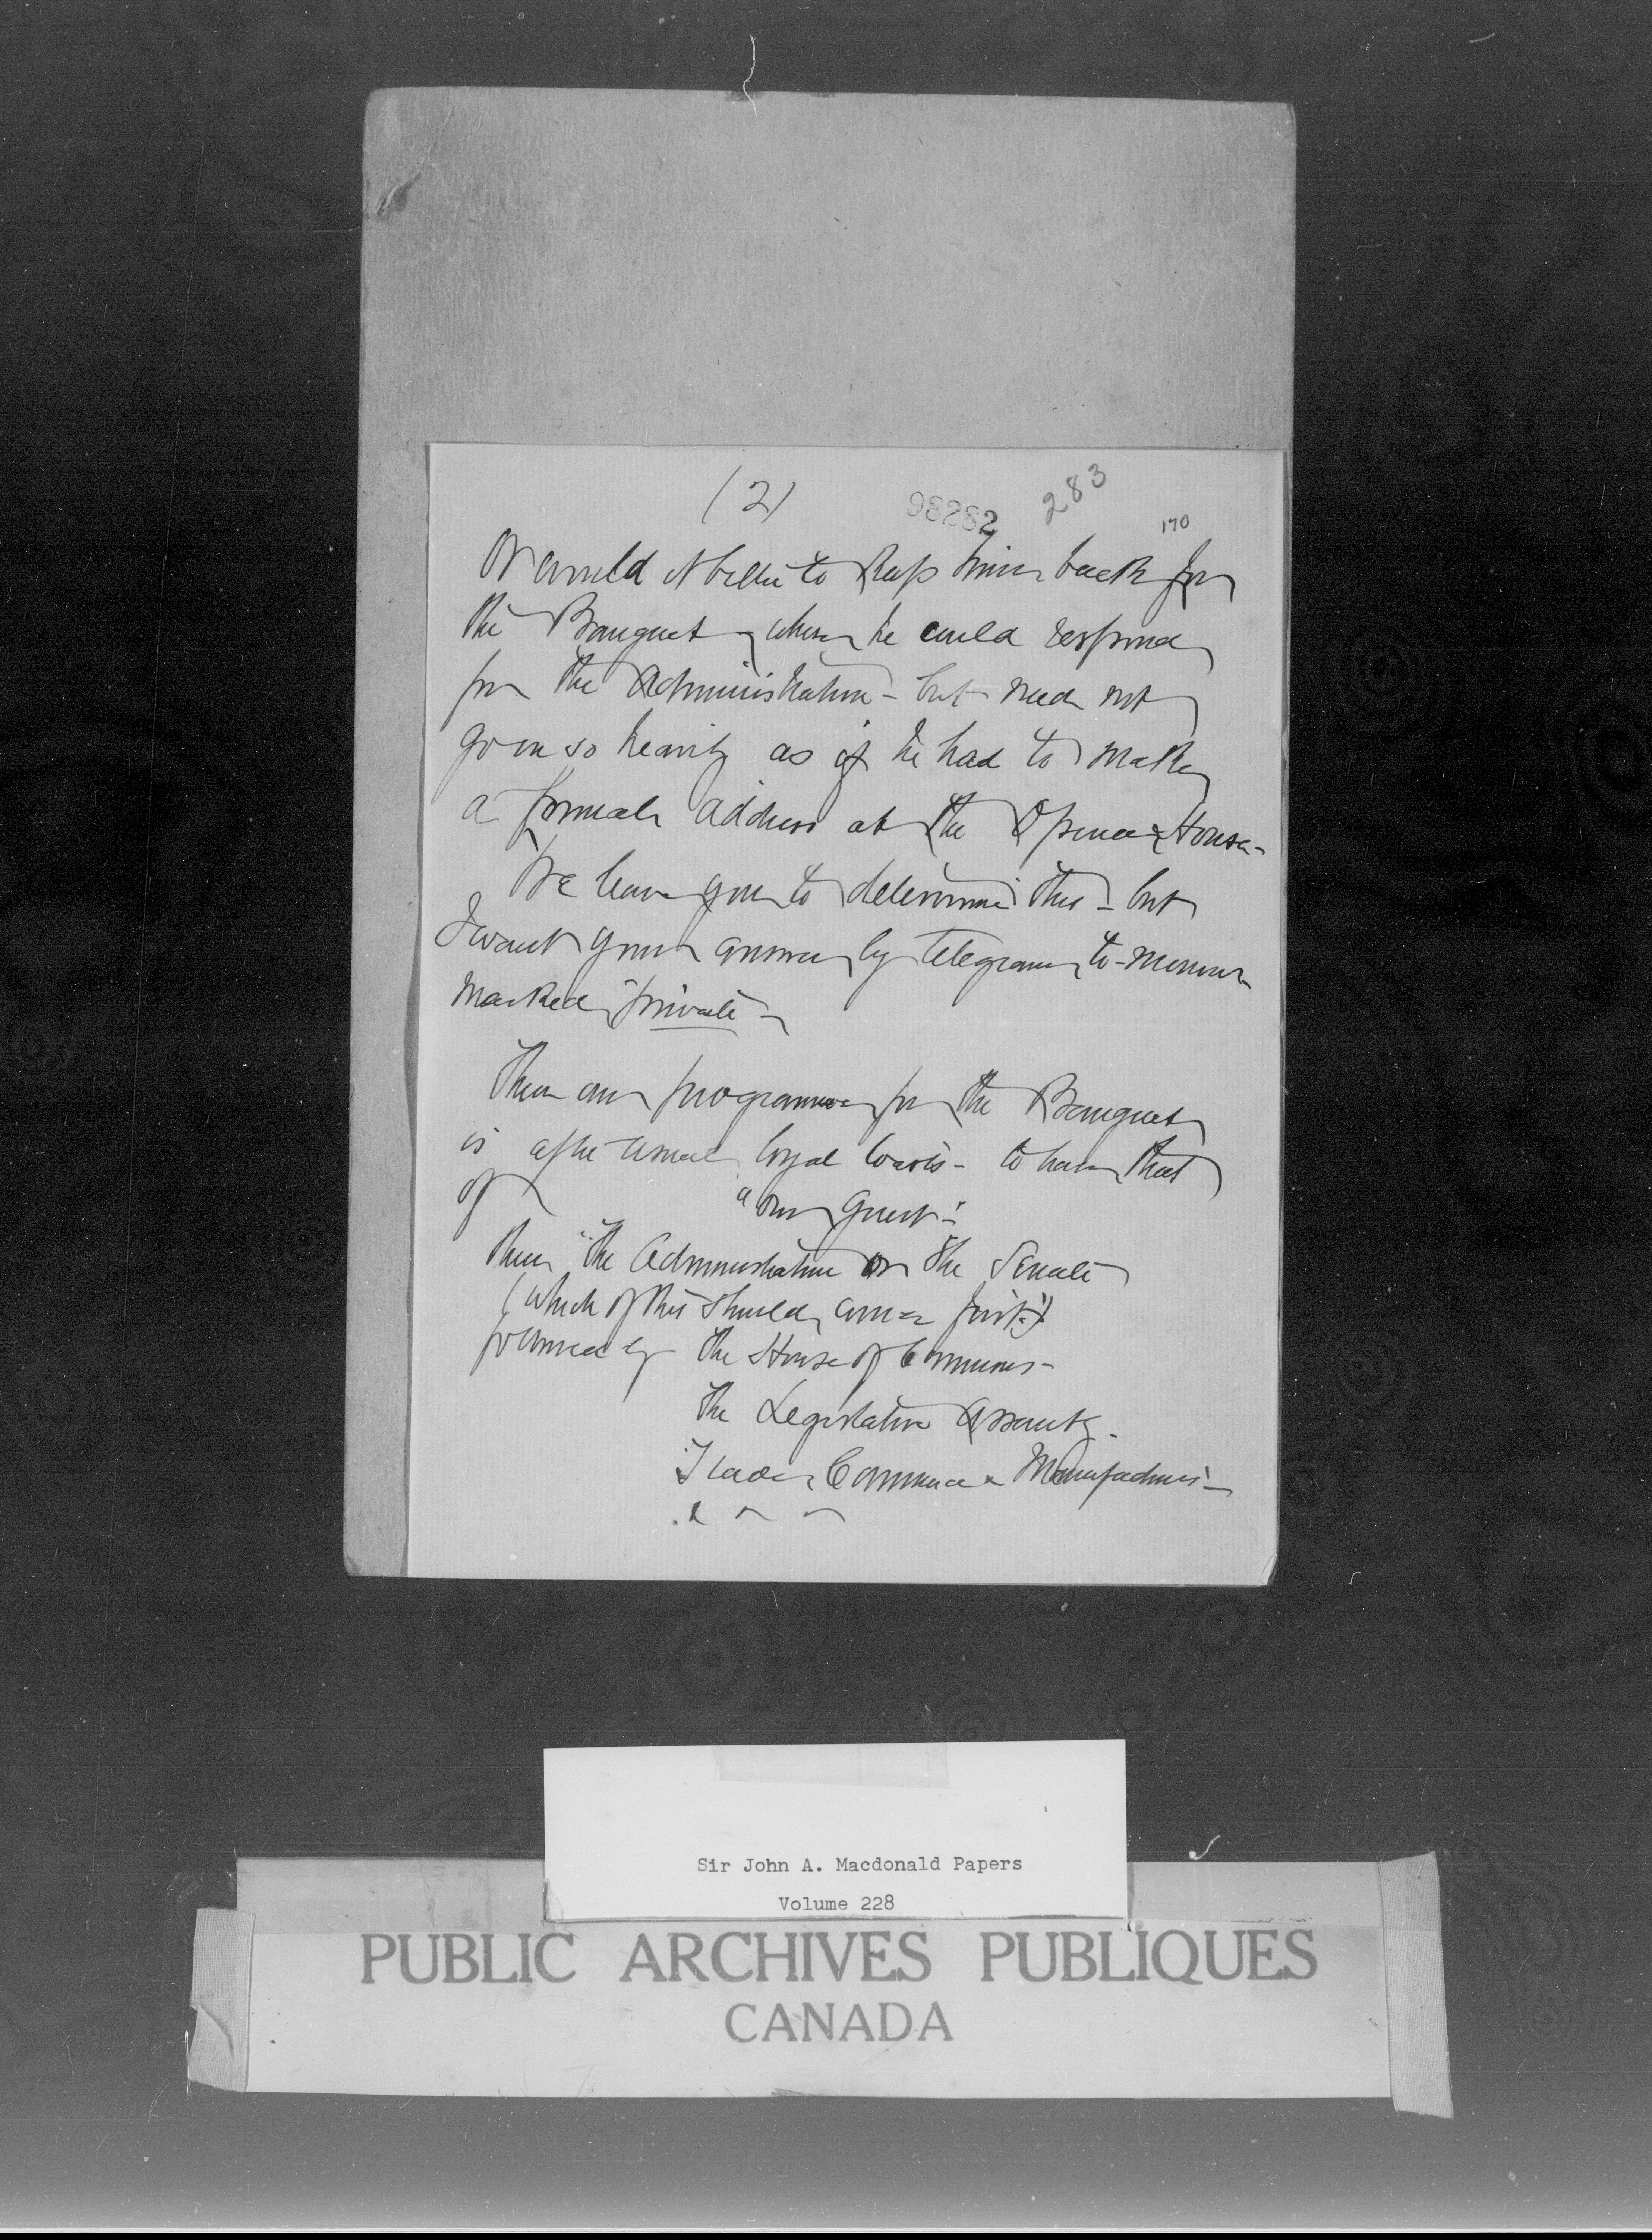 (2)
98282 283
170
Or would it better to keep him back for
the Banquet, where he could respond
for the Administration - but need not
go in so heavily as if he had to make
a formal address at the Opera House -
We leave you to determine this - but
I want your answer by telegram to-morrow
marked "private" -
Then our programme for the Banquet
is after usual loyal toasts - to have that
of "Our Guest" -
then "the Administration or the Senate
(which of these should come first?)
followed by the House of Commons -
the Legislative Assembly -
Trade, Commerce & Manufactures -
&
Sir John A. Macdonald Papers
Volume 228
PUBLIC ARCHIVES PUBLIQUES
CANADA